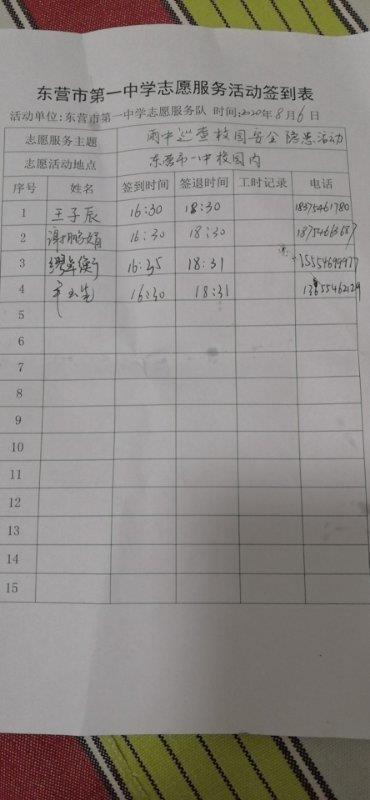 东营市第一中学志愿服务活动签到表
活动单位:东营市第一中学志愿服务队 时间:2020年8月6日
志愿服务主题 雨中巡查校园安全隐患活动
志愿活动地点 东营市一中校园内
序号 姓名 签到时间 签退时间 工时记录 电话
1 王子辰 16:30 18:30 18375461780
2 谢鹏娟 16:30 18:30
3 16:35 18:31 15554699477
4 16:30 18:31
5
6
7
8
9
10
11
12
13
14
15